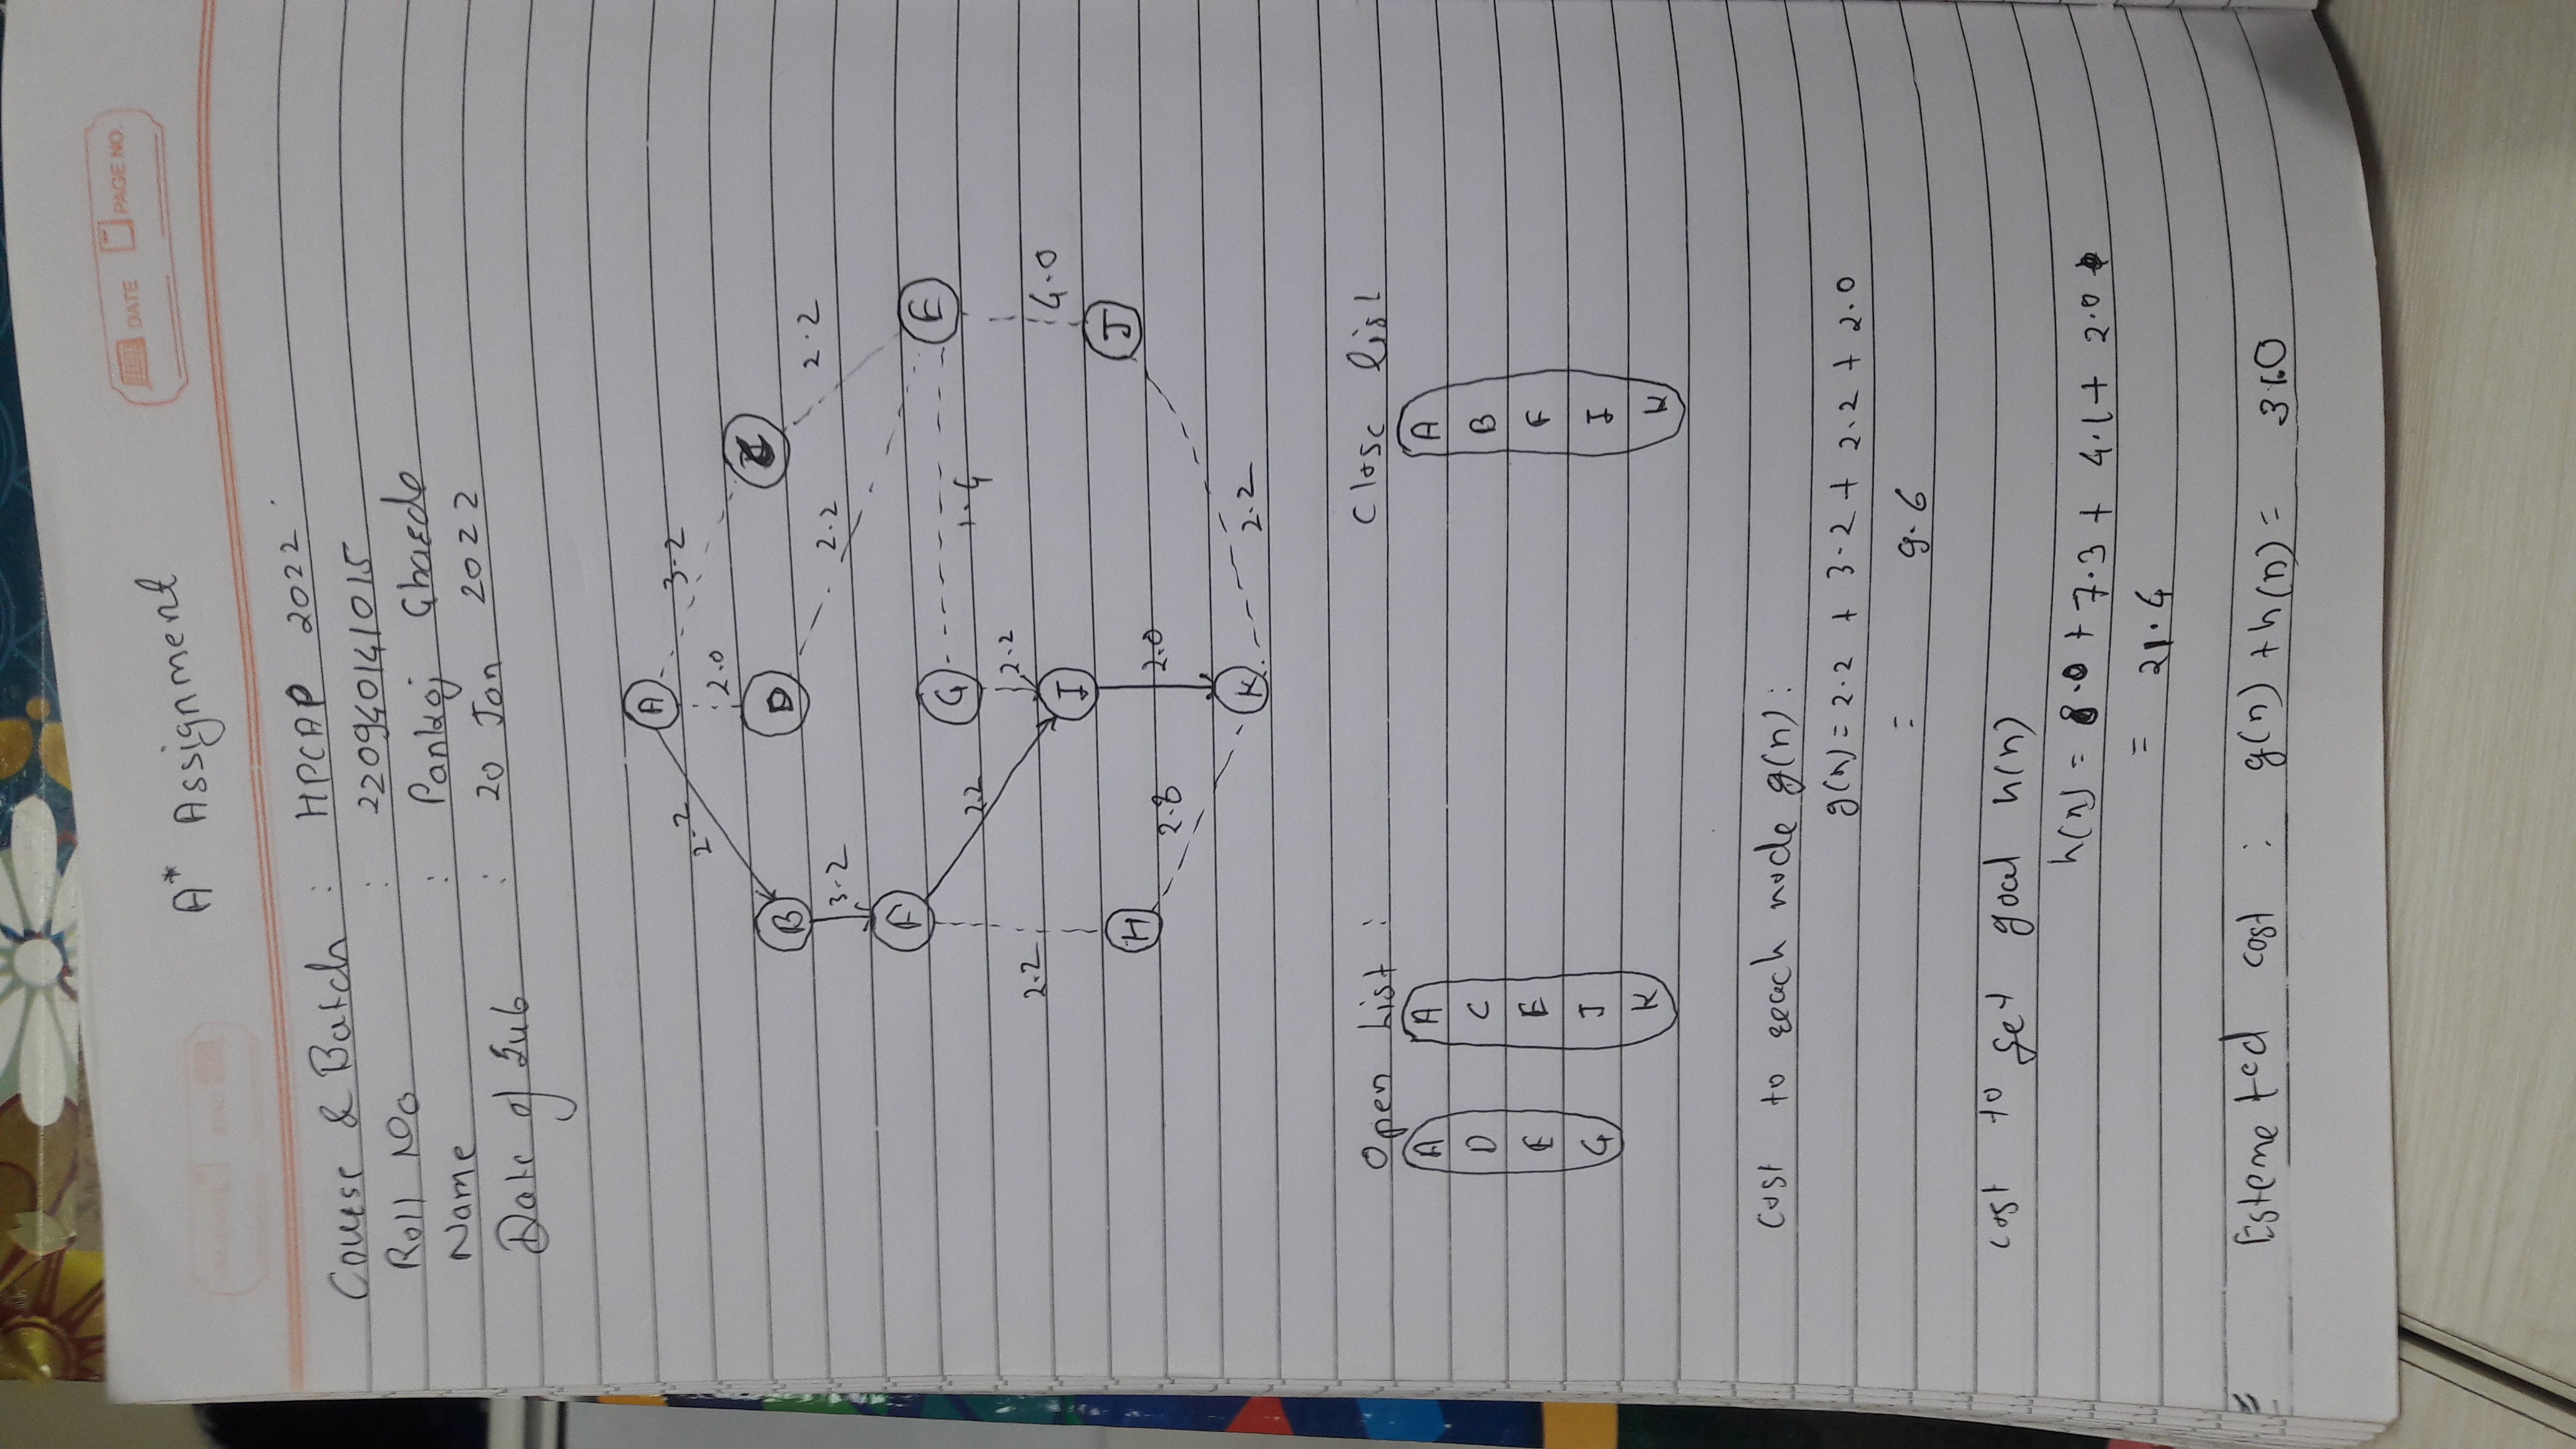 DATE PAGE NO.
A* Assignment
Course & Batch : HPCAP 2022
Roll No : 220940141015
Name : Pankaj Gharde
Date of Sub : 20 Jan 2022
A
2.2 3.2
2.0
B D C
3.2 2.2 2.2
F G E
2.2 1.4
2.2 2.2 4.0
I
H J
2.8 2.0
K 2.2
Open List : Close list
A A A
D C B
E E F
G J I
K K
Cost to reach node g(n):
g(n) = 2.2 + 3.2 + 2.2 + 2.0
= 9.6
cost to get goal h(n)
h(n) = 8.0 + 7.3 + 4.1 + 2.0
= 21.4
Estemeted cost : g(n) + h(n) = 31.0